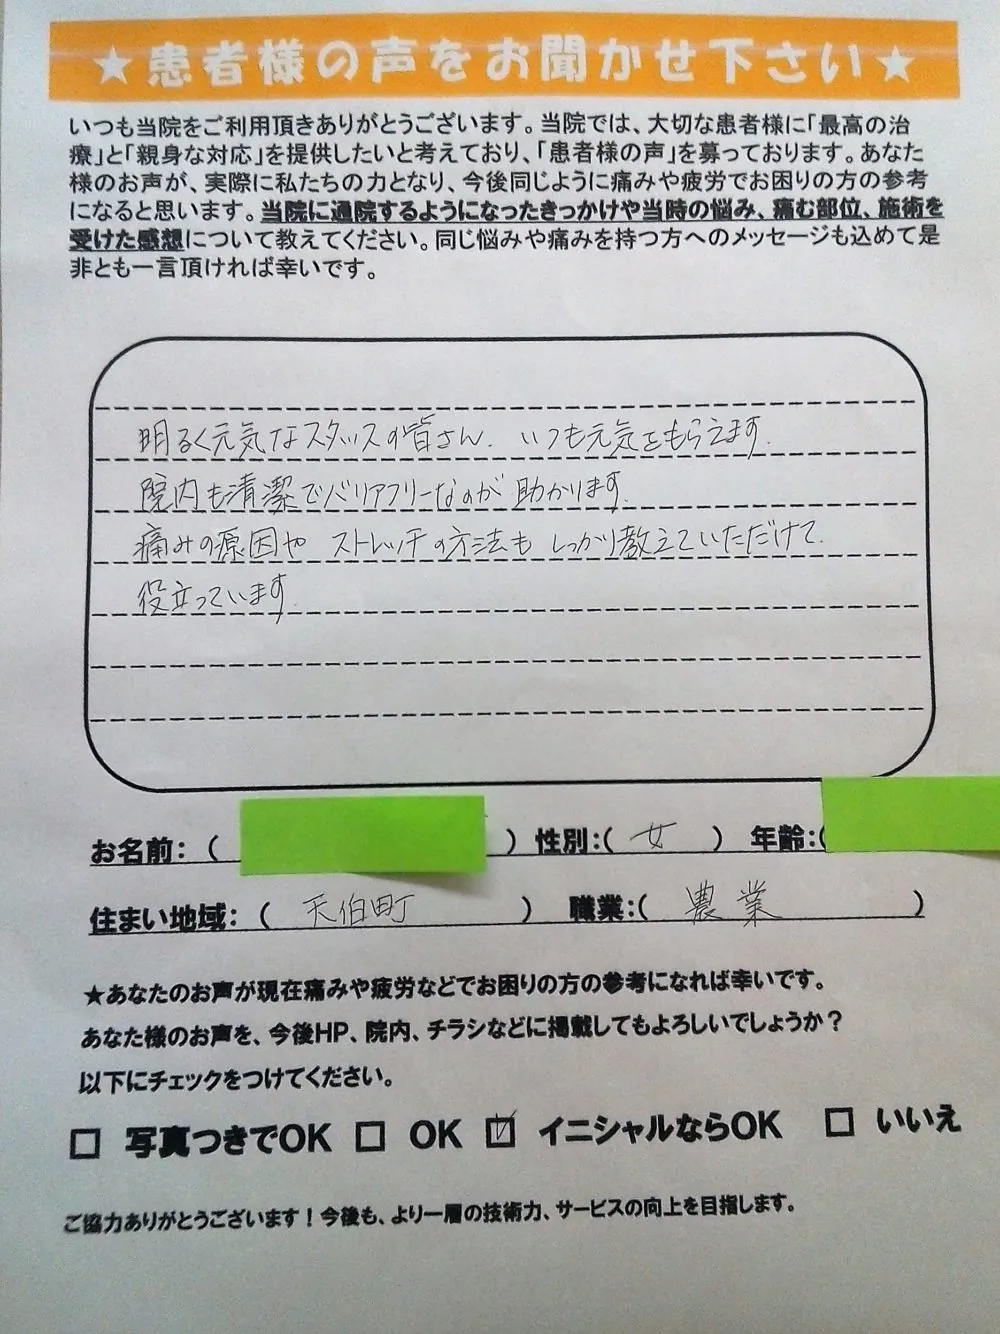 ★患者様の声をお聞かせ下さい★
いつも当院をご利用頂きありがとうございます。当院では、大切な患者様に「最高の治
療」と「親身な対応」を提供したいと考えており、「患者様の声」を募っております。あなた
様のお声が、実際に私たちの力となり、今後同じように痛みや疲労でお困りの方の参考
になると思います。当院に通院するようになったきっかけや当時の悩み、痛む部位、施術を
受けた感想について教えてください。同じ悩みや痛みを持つ方へのメッセージも込めて是
非とも一言頂ければ幸いです。
明るく元気なスタッフの皆さん、いつも元気をもらえます。
院内も清潔でバリアフリーなのが助かります。
痛みの原因やストレッチの方法もしっかり教えていただけて、
役立っています。
お名前：（ ）性別：（ 女 ）年齢：（
住まい地域：（ 天伯町 ）職業：（ 農業 ）
★あなたのお声が現在痛みや疲労などでお困りの方の参考になれば幸いです。
あなた様のお声を、今後HP、院内、チラシなどに掲載してもよろしいでしょうか？
以下にチェックをつけてください。
□ 写真つきでOK □ OK ☑ イニシャルならOK □ いいえ
ご協力ありがとうございます！今後も、より一層の技術力、サービスの向上を目指します。